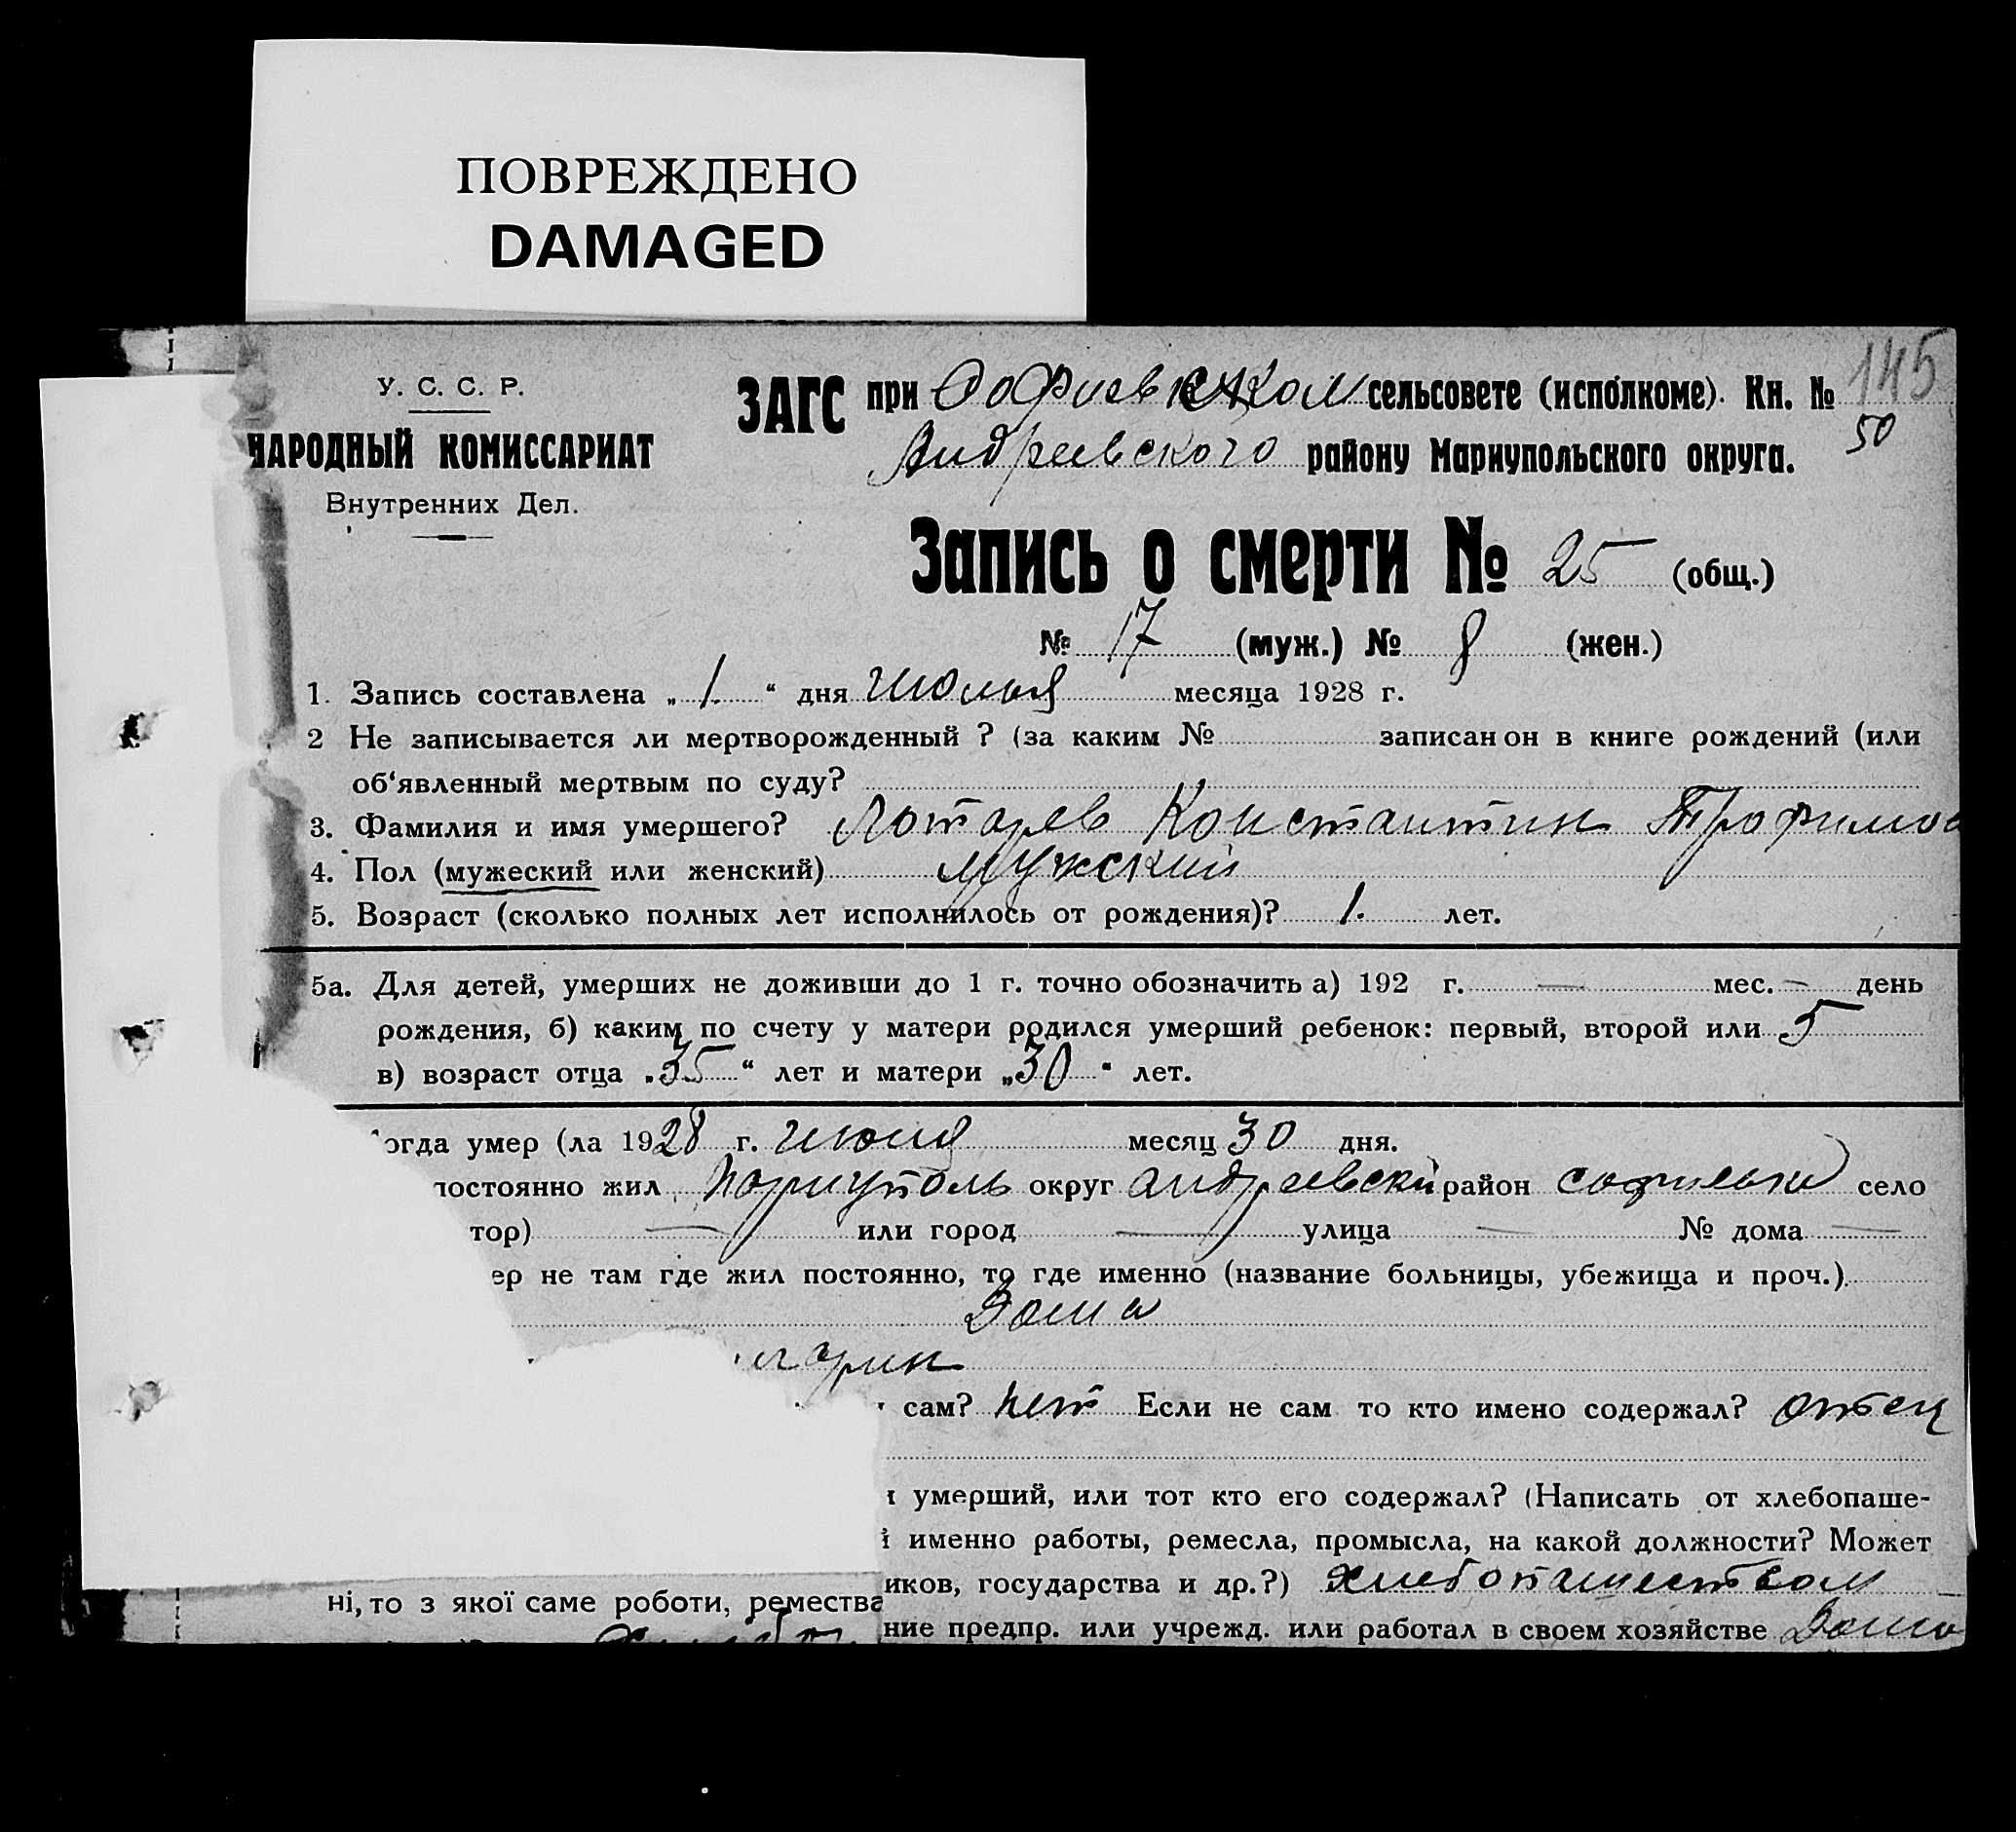 ПОВРЕЖДЕНО
DAMAGED
145
У. С. С. Р.
НАРОДНЫЙ КОМИССАРИАТ
Внутренних Дел.
ЗАГС при Софиевском сельсовете (исполкоме). Кн. №
50
Андреевского району Мариупольского округа.
Запись о смерти № 25 (общ.)
№ 17 (муж.) № 8 (жен.)
1. Запись составлена „ 1. “ дня июлья месяца 1928 г.
2 Не записывается ли мертворожденный ? (за каким № записан он в книге рождений (или
об‘явленный мертвым по суду?
3. Фамилия и имя умершего? Лотарев Константин Трофимов
4. Пол (мужеский или женский) мужский
5. Возраст (сколько полных лет исполнилось от рождения)? 1. лет.
5а. Для детей, умерших не доживши до 1 г. точно обозначить а) 192 г. — мес. — день
рождения, б) каким по счету у матери родился умерший ребенок: первый, второй или 5
в) возраст отца „35“ лет и матери „30“ лет.
огда умер (ла 1928 г. июня месяц 30 дня.
постоянно жил Мариуполь округ андреевски район село
тор) — или город — улица — № дома —
ер не там где жил постоянно, то где именно (название больницы, убежища и проч.)
Дома
сам? нет Если не сам то кто имено содержал? отец
умерший, или тот кто его содержал? (Написать от хлебопаше-
именно работы, ремесла, промысла, на какой должности? Может
иков, государства и др.?) хлебопашеством
ні, то з якої саме роботи, ремества
ние предпр. или учрежд. или работал в своем хозяйстве Дома